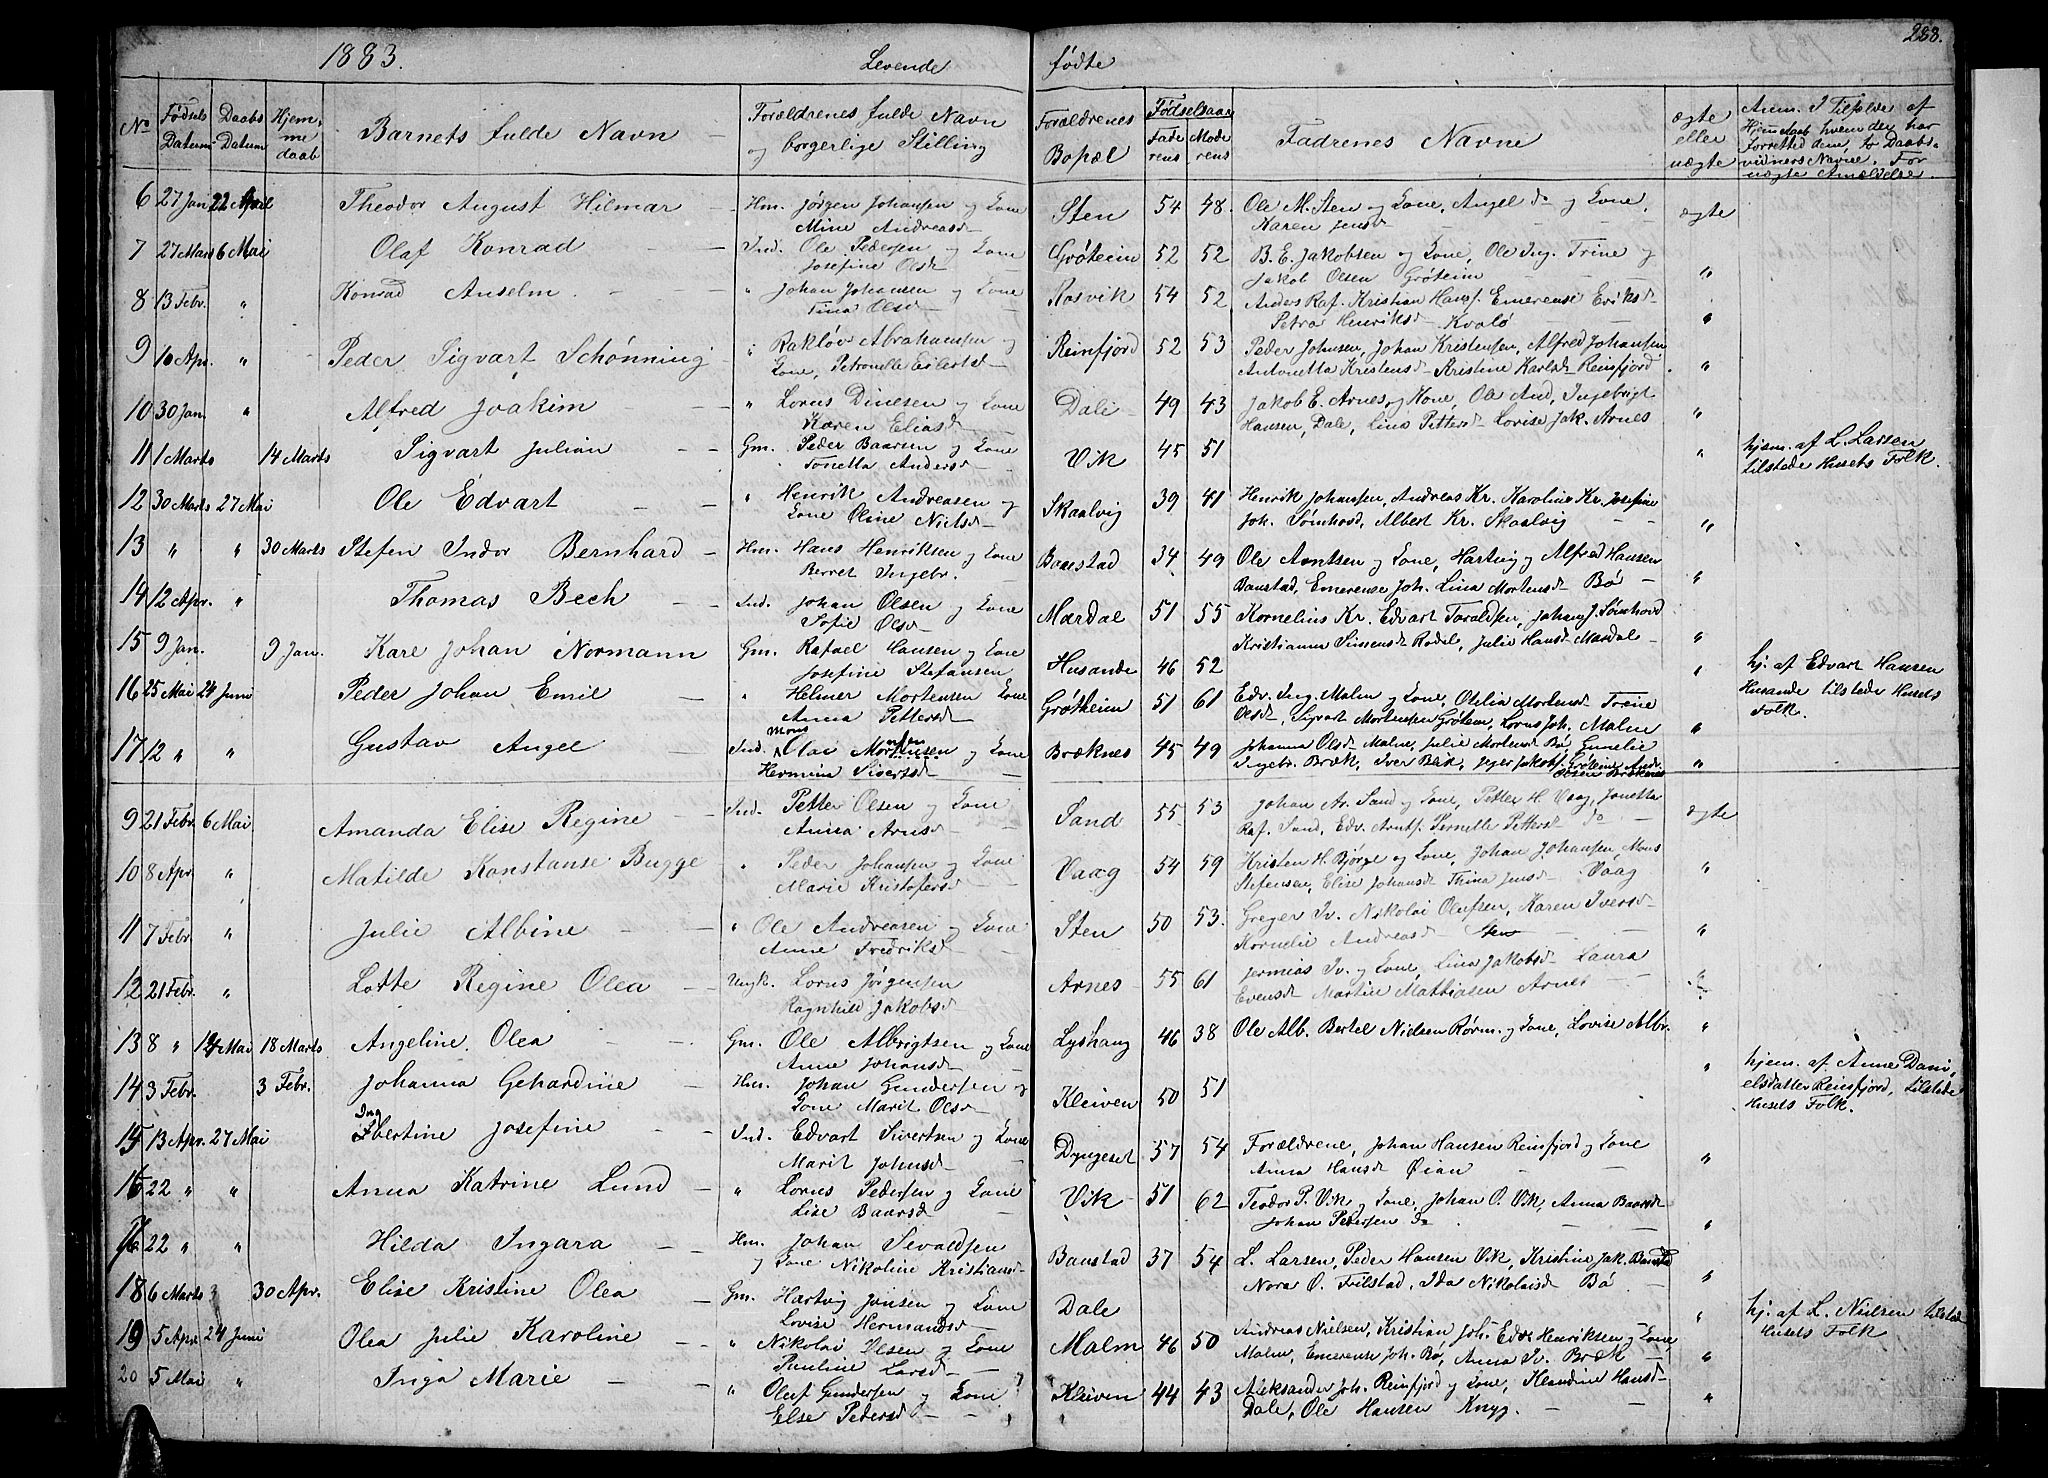 1883. Levende fødte 288.
No Fødsels Datum Daabs Datum Hjemmedaab Barnets fulde Navn Forældrenes fulde Navn og borgerlige Stilling Forældrenes Bopæl Fødselsaar Faderens Moderens Fadrenes Navne ægte eller uægte Anm. I Tilfælde af Hjemdaab hvem der har Forrettet den, to Daabsvidners Navne. For uægte Anmeldelse.
6 27 Jan 22 April Theodor August Hilmar — Hm. Jørgen Johansen og Kone Sten 54 48. Ole M. Sten og Kone, Angel do og Kone, ægte
Mine Andreasd Karen Jensd
7 27 Mars 6 Mai Olaf Konrad — Ind. Ole Pedersen og Kone Grøteim 52 52 B. E. Jakobsen og Kone, Ole Ing. Trine og
Josefine Olsd Jakob Olsen Grøteim "
8 13 Febr. " Konrad Anselm — " Johan Johansen og Kone Rosvik 54 52 Anders Raf. Kristian Hansf. Emerense Eriksd
Tina Olsd Petra Henriksd Kvalø "
9 10 Apr. " Peder Sigvart Schønning " Rakløv Abrahamsen og Reinfjord 52 53 Peder Johnsen, Johan Kristensen, Alfred Johansen
Kone, Petronelle Eilertsd — Antonetta Kristensd Kristine Karlsd Reinsfjord "
10 30 Jan. " Alfred Joakim — " Lorns Dinesen og Kone Dale 49 43 Jakob E. Arnes og Kone, Ole And, Ingebrigt
Karen Eliasd Hansen, Dale, Lina Pettersd Lovise Jak. Arnes "
11 1 Marts 14 Marts Sigvart Julian Gm. Peder Baarsen og Kone Vik 45 51 " hjem. af L. Larsen
Tonetta Andersd tilstede Husets Folk.
12 30 Marts 27 Mai Ole Edvart — " Henrik Andreasen og Skaalvig 39 41 Henrik Johansen, Andreas Kr. Karoline Kr. Josefine
Kone Oline Nielsd — Joh. Sømhovd, Albert Kr. Skaalvig — "
13 " " 30 Marts Stefen Indor Bernhard — Hm. Hans Henriksen og Kone Baastad 34 49 Ole Arntsen og Kone, Hartvig og Alfred Hansen
Berret Ingebr. Baastad, Emerense Joh. Lina Mortensd Bø — "
14 12 Apr. " Thomas Bech — Ind. Johan Olsen og Kone Mardal 51 55 Kornelius Kr. Edvart Toraldsen, Johan J. Sømhovd
Sofie Olsd Kristianna Simensd Rodal, Julie Hansd Mardal — "
15 9 Jan. 9 Jan. Karl Johan Normann Gm. Rafael Hansen og Kone Husande 46 52 " hj. af Edvart Hansen
Josefine Stefansen Husande tilstede Husets
Folk.
16 25 Mai 24 Juni Peder Johan Emil — " Helmer Mortensen Kone Grøtheim 51 61 Edv. Ing. Malm og Kone, Otilia Mortensd Trine
Anna Pettersd Olsd, Sigvart Mortensen Grøteim, Lorns Joh. Malm "
17 12 " " Gustav Angel — Ind. Mortensen og Kone Bræknes 45 49 Johanna Olsd Malm, Julie Mortensd Bø, Gunelie
Hermina Sivertsd — Ingebr. Bræk, Iver Bræk, Grøteim Andr. "
Olsen Bræknes
9 21 Febr. 6 Mai Amanda Elise Regine — Ind. Petter Olsen og Kone Sand 55 53 Johan Ar. Sand og Kone, Petter H. Vaag, Jonetta ægte
Anna Arnsd — Raf. Sand, Edv. Arntf. Pernelle Pettersd do —
10 8 Apr. " Matilde Konstanse Bugge — " Peder Johansen og Kone Vaag 54 59 Kristen H. Bjørge og Kone, Johan Johansen, Mons
Marie Kristofersd — Stefensen, Elise Johansd Thina Jensd Vaag "
11 7 Febr. " Julie Albine — " Ole Andreasen og Kone Sten 50 53. Greger Iv. Nikolai Olufsen, Karen Iversd
Anne Fredriksd Kornelie Andreasd Sten "
12 21 Febr. " Lotte Regine Olea — Ungk. Lorns Jørgensen Arnes 55 61 Jermias Iv. og Kone, Lina Jakobsd Laura
Ragnhild Jakobsd Evensd Martin Mathiasen Arnes "
13 8 " Mai 18 Marts Angeline Olea — Gm. Ole Albrigtsen og Kone Lyshaug 46 38 Ole Alb. Bertel Nielsen Rørm. og Kone, Lovise Albr. "
Anne Johansd
14 3 Febr. 3 Febr. Johanna Gehardine — Hm. Johan Gundersen og Kleiven 50 51 " hjem. af Anne Dani,
Kone Marit Olsd — elsdatter Reinsfjord, tilstede
Husets Folk.
15 13 Apr. 27 Mai Ingbertine Josefine — Ind. Edvart Sivertsen og Kone Dyngeset 57 54 Forældrene, Johan Hansen Reinsfjord og Kone
Marit Johnsd — Anna Hansd Øian — "
16 22 " " Anna Katrine Lund — " Lorns Pedersen og Kone Vik 51 62 Teodor P. Vik og Kone, Johan O. Vik, Anna Baarsd
Lise Baarsd — Johan Pedersen do "
22 " " Hilda Ingara — Hm. Johan Sevaldsen Baastad 37 54 L. Larsen, Peder Hansen Vik, Kristine Jak. Baastad
og Kone Nikoline Kristiansd Nora O. Filstad, Ida Nikolaisd Bø — "
18 6 Marts 30 Apr. Elise Kristine Olea — Gm. Hartvig Jensen og Kone Dale " hj. af L. Nielsen tilstede
Lovise Hermandsd Husets Folk
19 5 Apr. 24 Juni Olea Julie Karoline — " Nikolai Olsen og Kone Malm 46 50 Andreas Nielsen, Kristian Joh. Edv. Henriksen og Kone
Pauline Larsd — Malm, Emerense Joh. Bø, Anna Iv. Bræk — "
20 5 Mai " Inga Marie — " Oluf Gundersen og Kone Kleiven 44 43 Aleksander Joh. Reinsfjord og Kone, Klaudine Hansd
Else Pedersd — Dale, Ole Hansen Knyg. — "